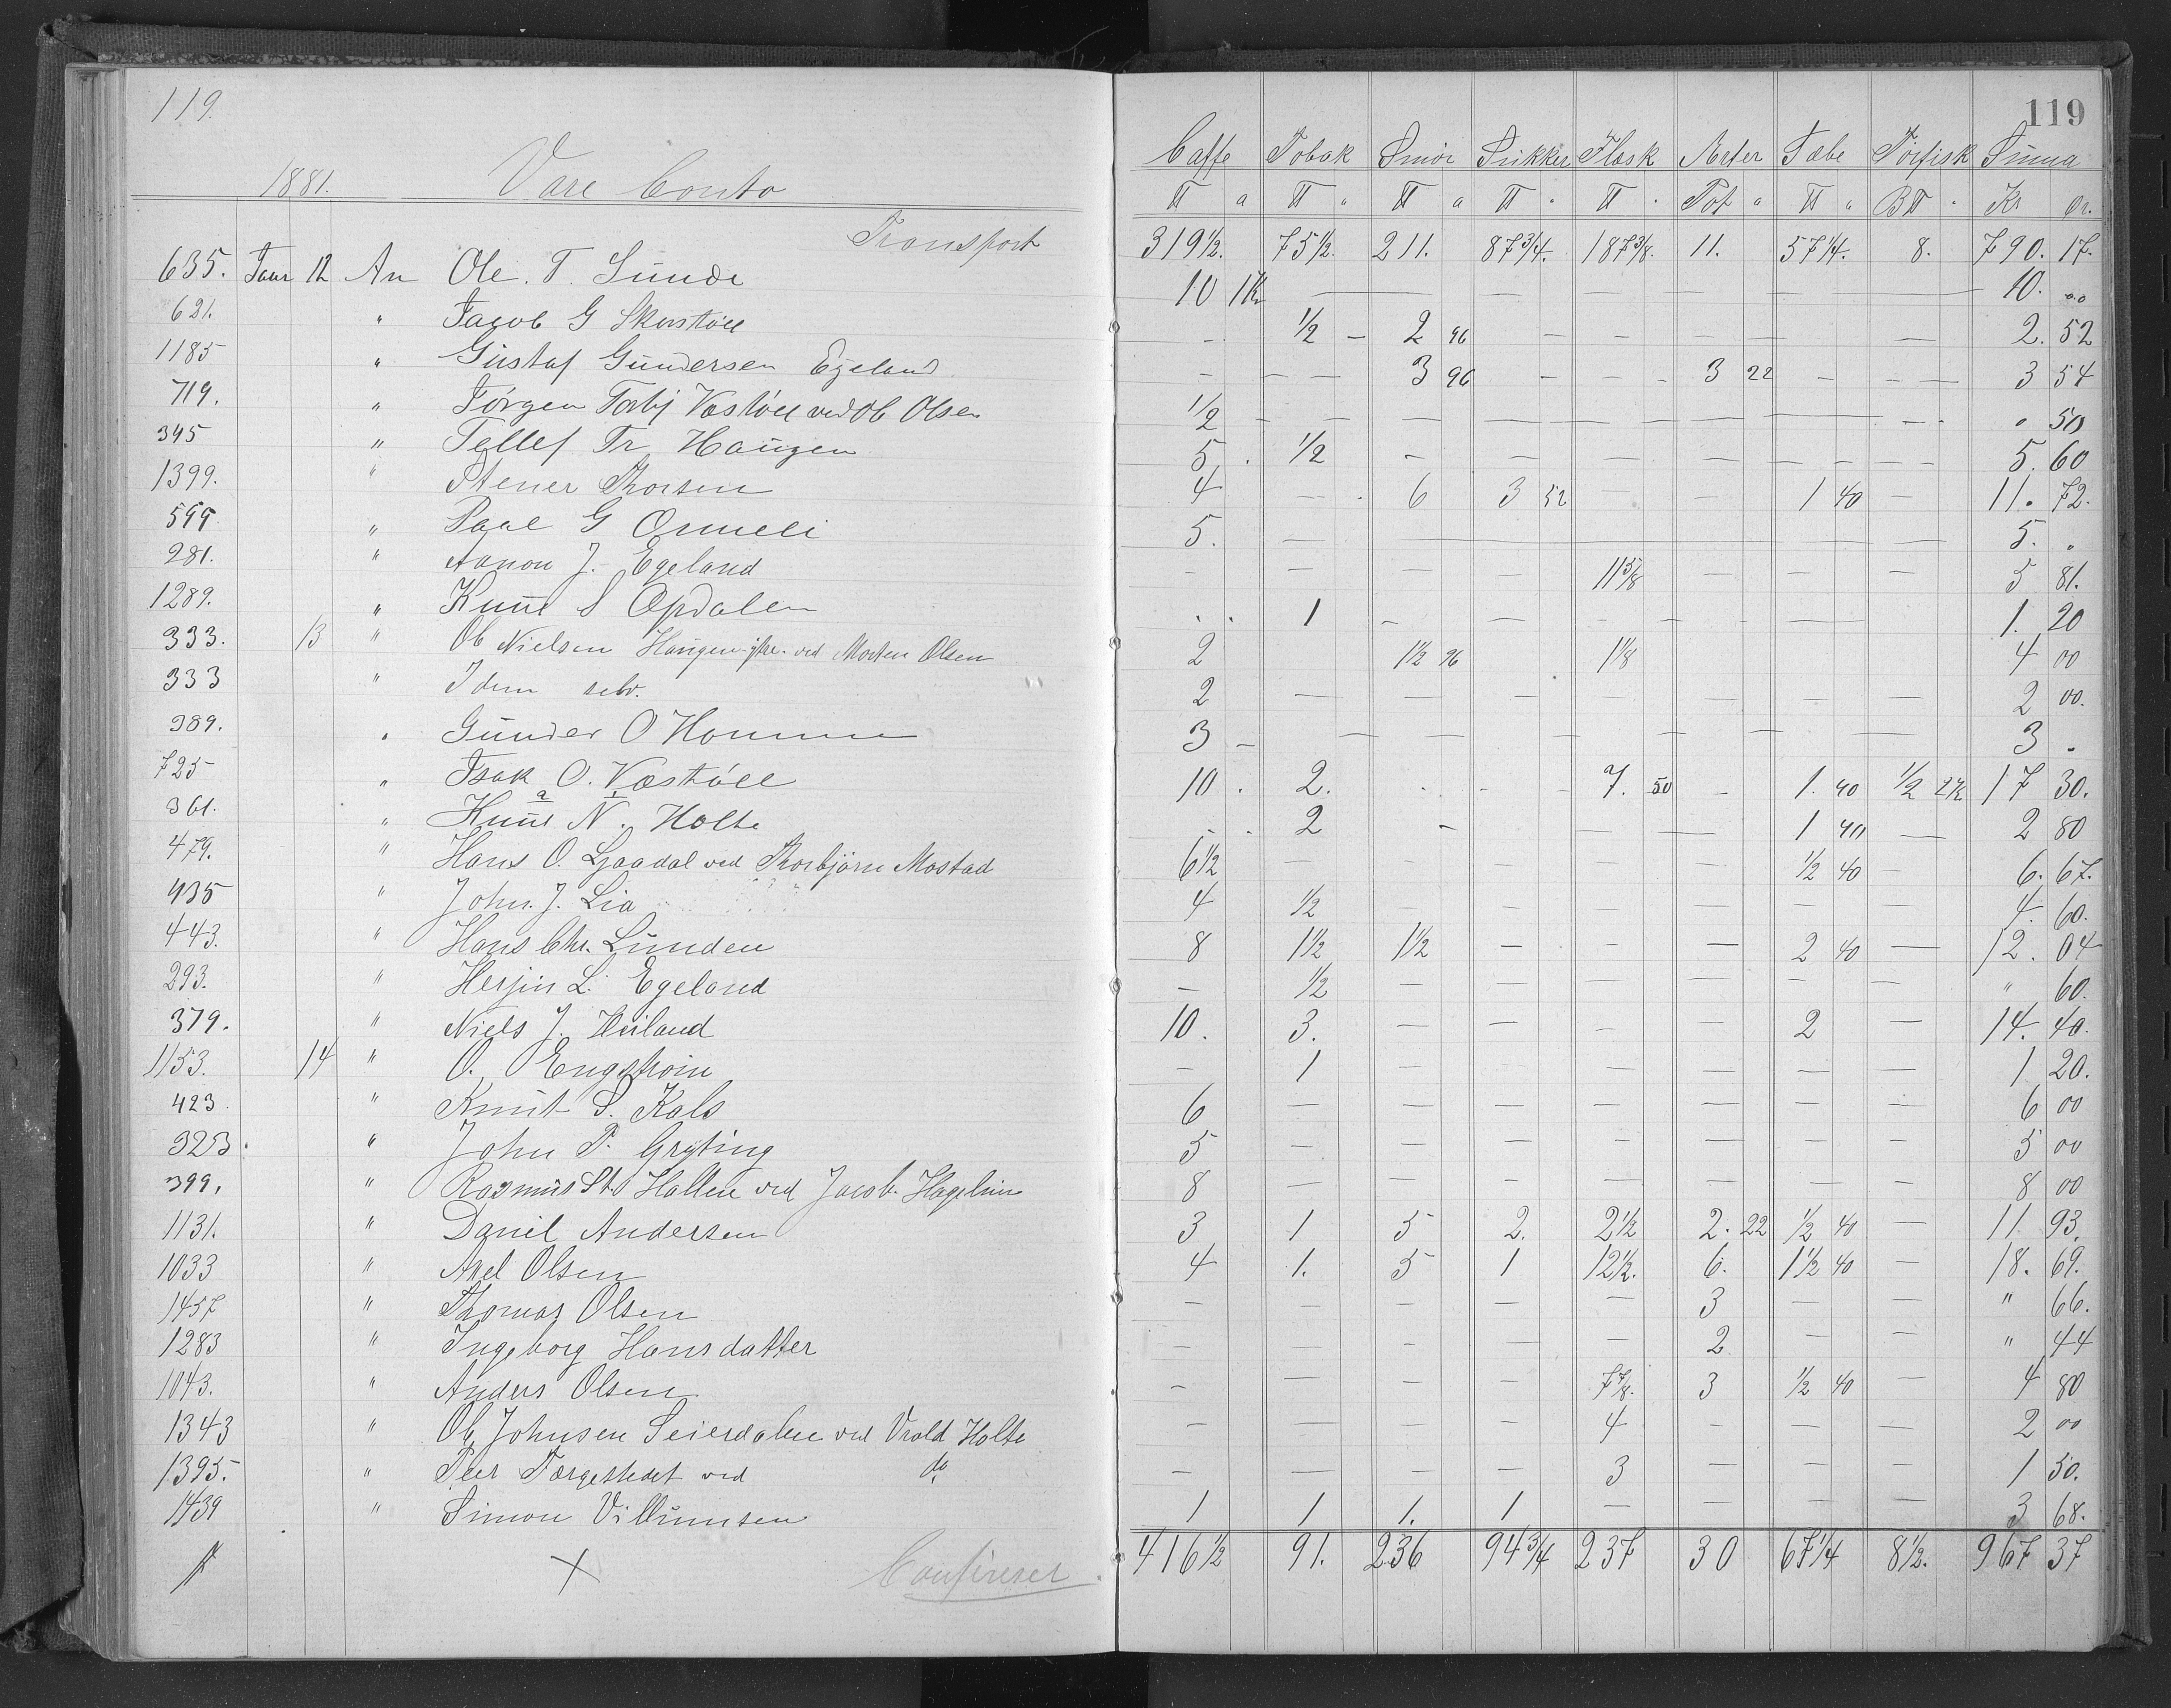 119.
119
1881. Vare Conto
Caffe Tobak Smör Sukker Flæsk Erter Sæbe Törfisk Suma
℔ a ℔ " ℔ a ℔ " ℔ " Pot " ℔ " B℔ " Kr Ör.
Transport 319½. 75½. 211. 87¾. 187⅜. 11. 57¼. 8. 790. 17.
635. Janr 12 An Ole. T. Sunde 10 1Kr — — — — — 10. 00
621. " Jacob G Skarstöll - ½ — 2 96 — — — — — 2. 52
1185 " Gustaf Gundersen Egeland - — — 3 96 — — - 3 22 — - — 3 54
719. " Jörgen Torbj Væstöll ved Ob Olsen ½ - — — — — — — — " 50
345 " Tellef Tr Haugen 5 . ½ — — — — — — 5. 60
1399. " Stener Thorsen 4 — . 6 3 52 — — 1 40 — 11. 72.
599 " Paal G Ormeli 5. — — — 5. "
281. " Aanon J. Egeland - — — — 11⅝ — — — 5 81.
1289. " Knut S Opdalen . . 1 - — — - — 1. 20
333. 13 " Ob Nielsen Haugen ved Morten Olsen 2 1½ 96 1⅛ 4 00
333 " Idem selv. 2 — — — — — — — 2 00.
389. " Gunder O Homme 3 - — — — — — — 3 "
725 " Isak O. Væstöll 10 . 2. . . - - 7. 50 - 1. 40 ½ 2Kr 17 30.
361. " Knut N. Holte . . 2 - — — 1 40 — 2 80
479. " Hans O. Ljaadal ved Thorbjörn Mostad 6½ — — — — — ½ 40 - 6. 67.
435 " John. J. Lia 4 ½ — — — — — — 4. 60.
443. " Hans Chr. Lunden 8 1½ 1½ — - — 2 40 — 12. 04
293. " Herjus L. Egeland — ½ — — — — — — " 60.
379. " Niels J. Heiland 10. 3. — — - — 2 — 14. 40.
1153. 14 " O. Engström — 1 — — — — — — 1 20.
423. " Knut S. Kals 6 — — — — — — — 6 00
323. " John P. Gryting 5 — — — — — — — 5 00
399. " Rasmus St. Hallen ved Jacob Hagelin 8 — — — — — — — 8 00
1131. " Daniel Andersen 3 1 5 2. 2½ 2. 22 ½ 40 — 11 93.
1033 " Axel Olsen 4 1. 5 1 12½. 6. 1½ 40 — 18. 69.
1457 " Thomas Olsen — — — — — 3 — — " 66.
1283 " Ingeborg Hansdatter — — - — — 2 — — " 44
1043. " Anders Olsen - — — — 7⅞. 3 ½ 40 — 4 80
1343 " Ob Johnsen Seierdalen ved Vrold Holte — — — — 4 — — — 2 00
1395. " Peer Færgestedet ved do — — — — 3 — — — 1 50.
1439 " Simon Villumsen 1 1 1. 1 — — — — 3 68.
Confereret. 416½ 91. 236 94¾ 237 30 67¼ 8½. 967 37